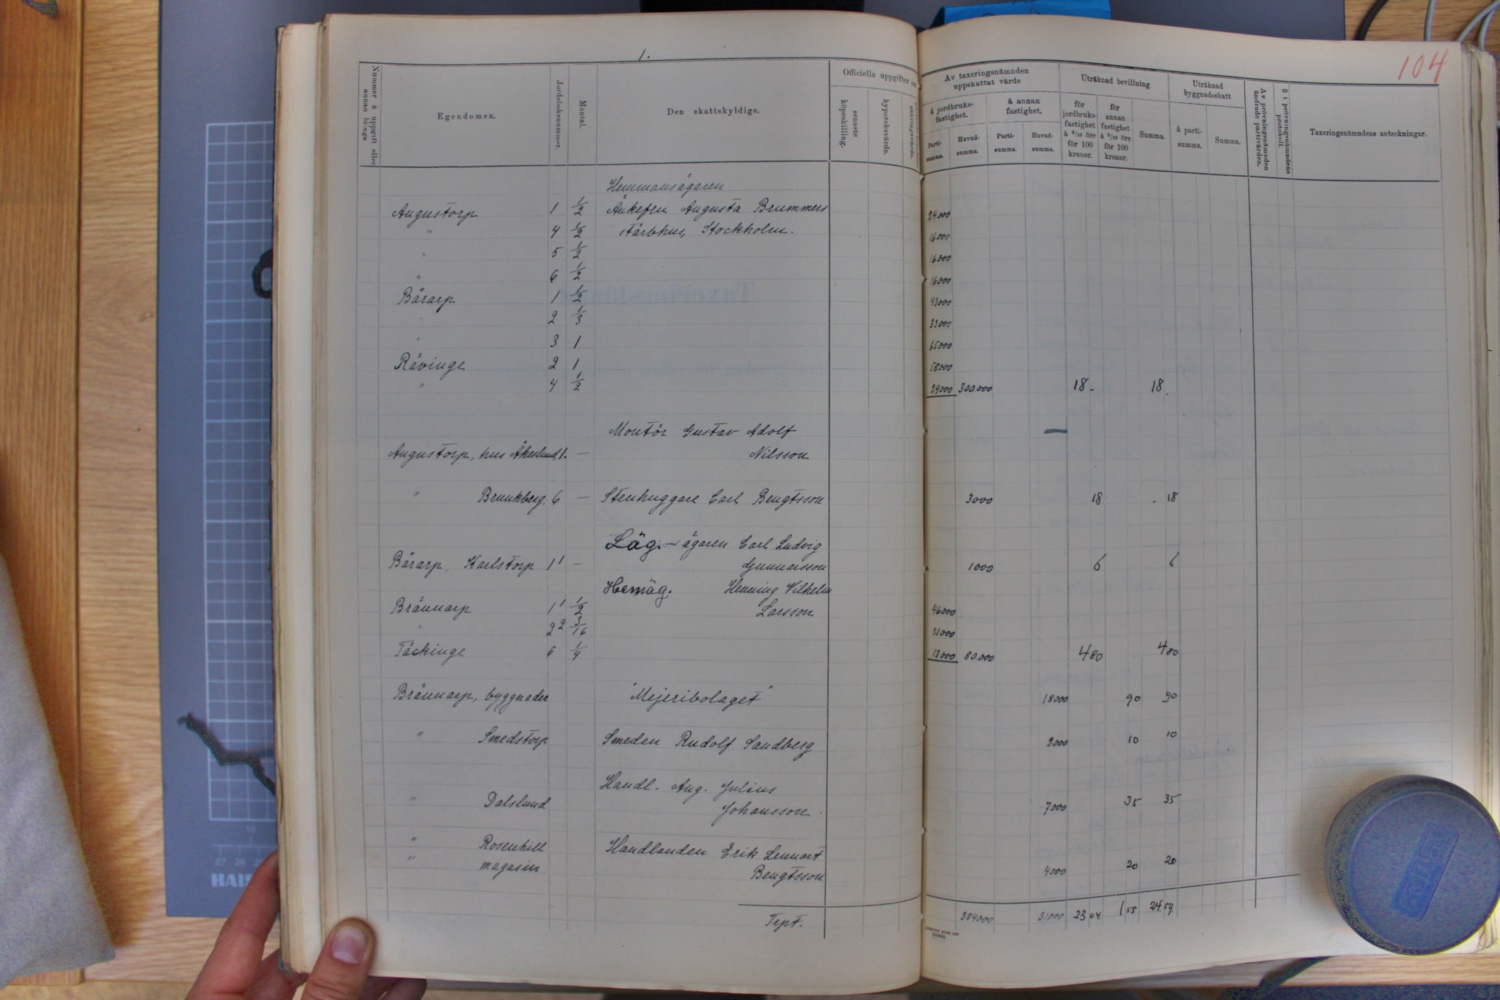 1.
104
Nummer å uppgift eller annan bilaga
Egendomen.
Jordeboksnummer.
Mantal.
Den skattskyldige.
Officiella uppgifter om
senaste köpeskilling.
hypoteksvärde.
Av taxeringsnämnden uppskattat värde
å jordbruksfastighet.
å annan fastighet.
Partisumma.
Huvudsumma.
Partisumma.
Huvudsumma.
Uträknad bevillning
för jordbruksfastighet
för 100 kronor.
för annan fastighet
för 100 kronor.
Summa.
Uträknad byggnadsskatt
å partisumma.
Summa.
Av prövningsnämnden ändrade partvärden.
§ i prövningsnämndens protokoll.
Taxeringsnämndens anteckningar.
Hemmansägaren
Augustorp 1 1/2 Änkefru Augusta Brummers 24000
" 4 1/2 stärbhus, Stockholm. 16000
" 5 1/2 16000
" 6 1/2 16000
Bårarp 1 1/2 43000
" 2 1/3 33000
" 3 1 65000
Råvinge 2 1 58000
" 4 1/2 29000 300.000 18 - 18.
Montör Gustav Adolf
Augustorp, hus Åkerlund 1. — Nilsson —
" Brunkberg 6 — Stenhuggare Carl Bengtsson 3000 18 18
Läg.-ägaren Carl Ludvig
Bårarp, Karlstorp 1¹ — Gunnarsson 1000 6 6
Hemäg. Henning Vilhelm
Brännarp 1¹ 1/2 Larsson 46000
" 2² 3/16
Täckinge 6 1/4 13000 80.000 4 80 4 80
Brännarp, byggnader "Mejeribolaget" 18000 90 90
" Smedstorp Smeden Rudolf Sandberg 2000 10 10
Handl. Aug. Julius
" Dalslund Johansson. 7000 35 35
" Rosenhill Handlanden Erik Lennart
" magasin Bengtsson 4000 20 20
Trpt. 384000 31000 23 04 1 55 24 59